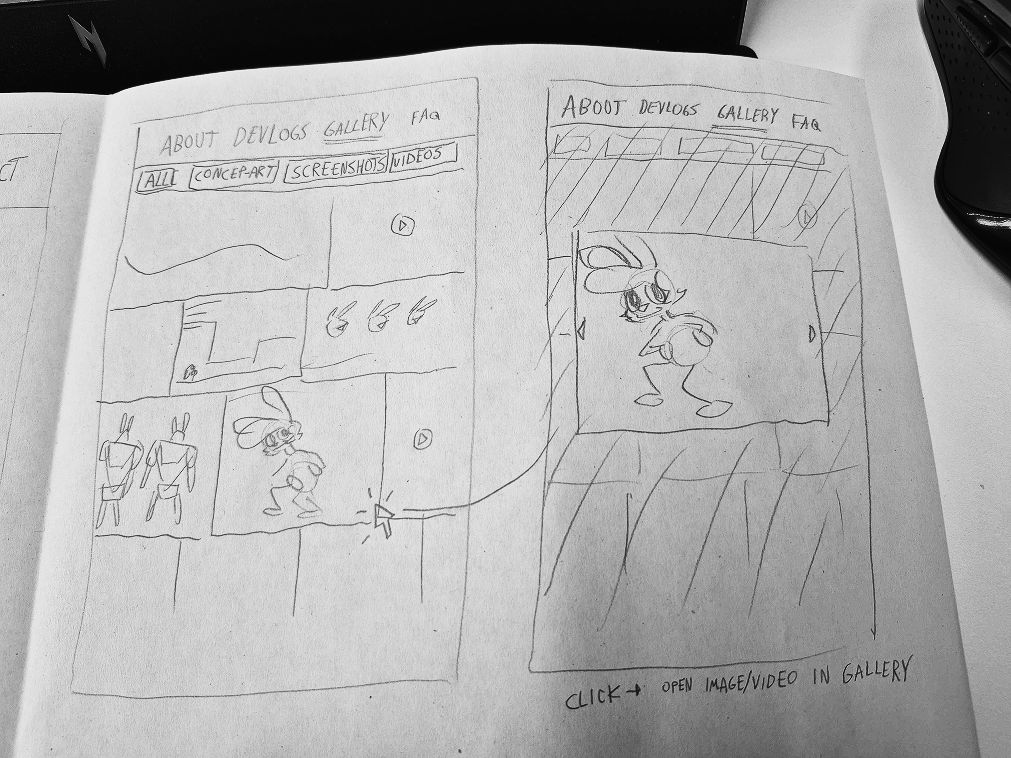 CT
ABOUT DEVLOGS GALLERY FAQ
ALL CONCEP-ART SCREENSHOTS VIDEOS
ABOUT DEVLOGS GALLERY FAQ
CLICK → OPEN IMAGE/VIDEO IN GALLERY